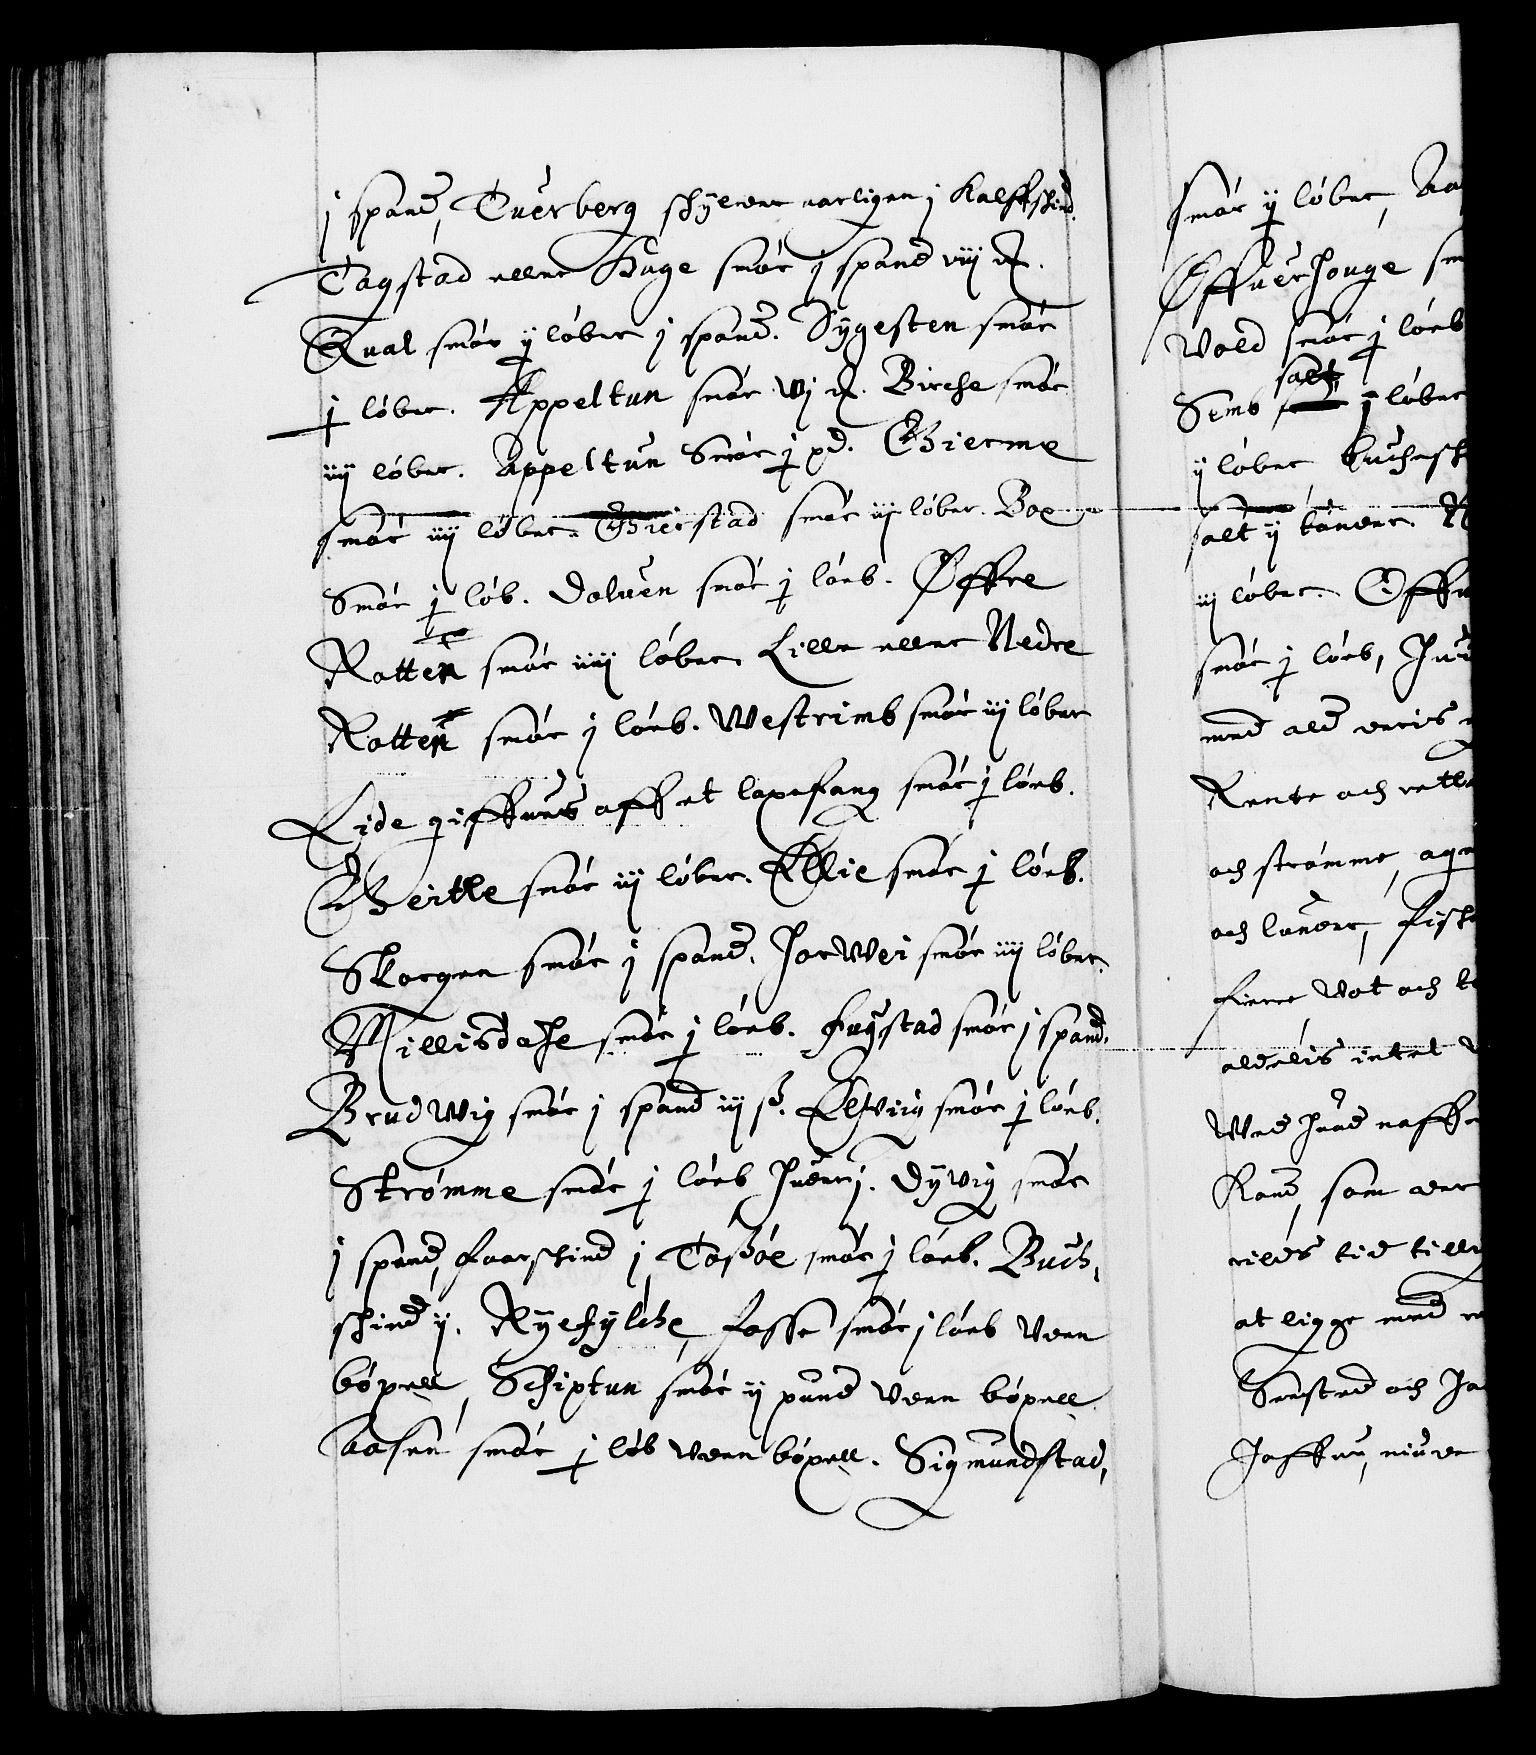 j spand, Tuerberg schyder aarligen j Kalffskind.
Tagstad eller Huge smør j spand viij
Qual smør ij løber j spand. Sygesten smør
j løber. Appeltun smør vj Birche smør
iiij løber. Appeltun Smør j pd. Gierme
smør iiij løber. Gierstad smør iij løber. Boe
Smør j løb. Doluen smør j løeb. Øffre
Rotten smør iiij løber. Lille eller Nedre
Rotten smør j løeb. Westrimb smør iij løber
Lide giffuis aff et laxefang smør j løeb.
Geitle smør iij løber. Ellie smør j løeb.
Skorgen smør j spand. Horwei smør iiij løber.
Millisdahle smør j løeb. Fuystad smør j spand.
Brudwig smør j spand iij Elsviig smør j løeb.
Strømme smør j løeb huder j. Dyvig smør
j spand, faarskind j, Tosøe smør j løeb. Buch,
skind ij. Ryefylche, Fosse smør j løeb Veen
bøxell, Schiptun smør ij pund Veen bøxell
Aasen smør j løb Veen bøxell. Sigmundstad,
smør ij løber,
Øffuerhouge sm
Vold smør j løeb
salt
Semb j løber
ij løber, buchesk
salt ij tønder.
iij løber. Offu
smør j løeb, Hu
med ald deris
Rente och rette
och strømme, age
och lunder, fisk
fierre, Vot och t
aldelis intet
Wed huad naffn
Kand, som der
tilds tid tillig
at ligge med re
Seested och Jo
Haffuer, niude